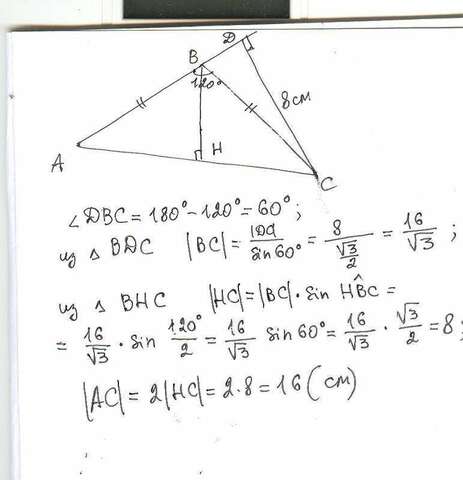 D
B
120°
8 см
A
H
C
∠DBC = 180° - 120° = 60° ;
из △ BDC |BC| = |DC| / sin 60° = 8 / (√3/2) = 16/√3 ;
из △ BHC |HC| = |BC| · sin HB̂C =
= 16/√3 · sin 120°/2 = 16/√3 sin 60° = 16/√3 · √3/2 = 8 ;
|AC| = 2|HC| = 2·8 = 16 (см)